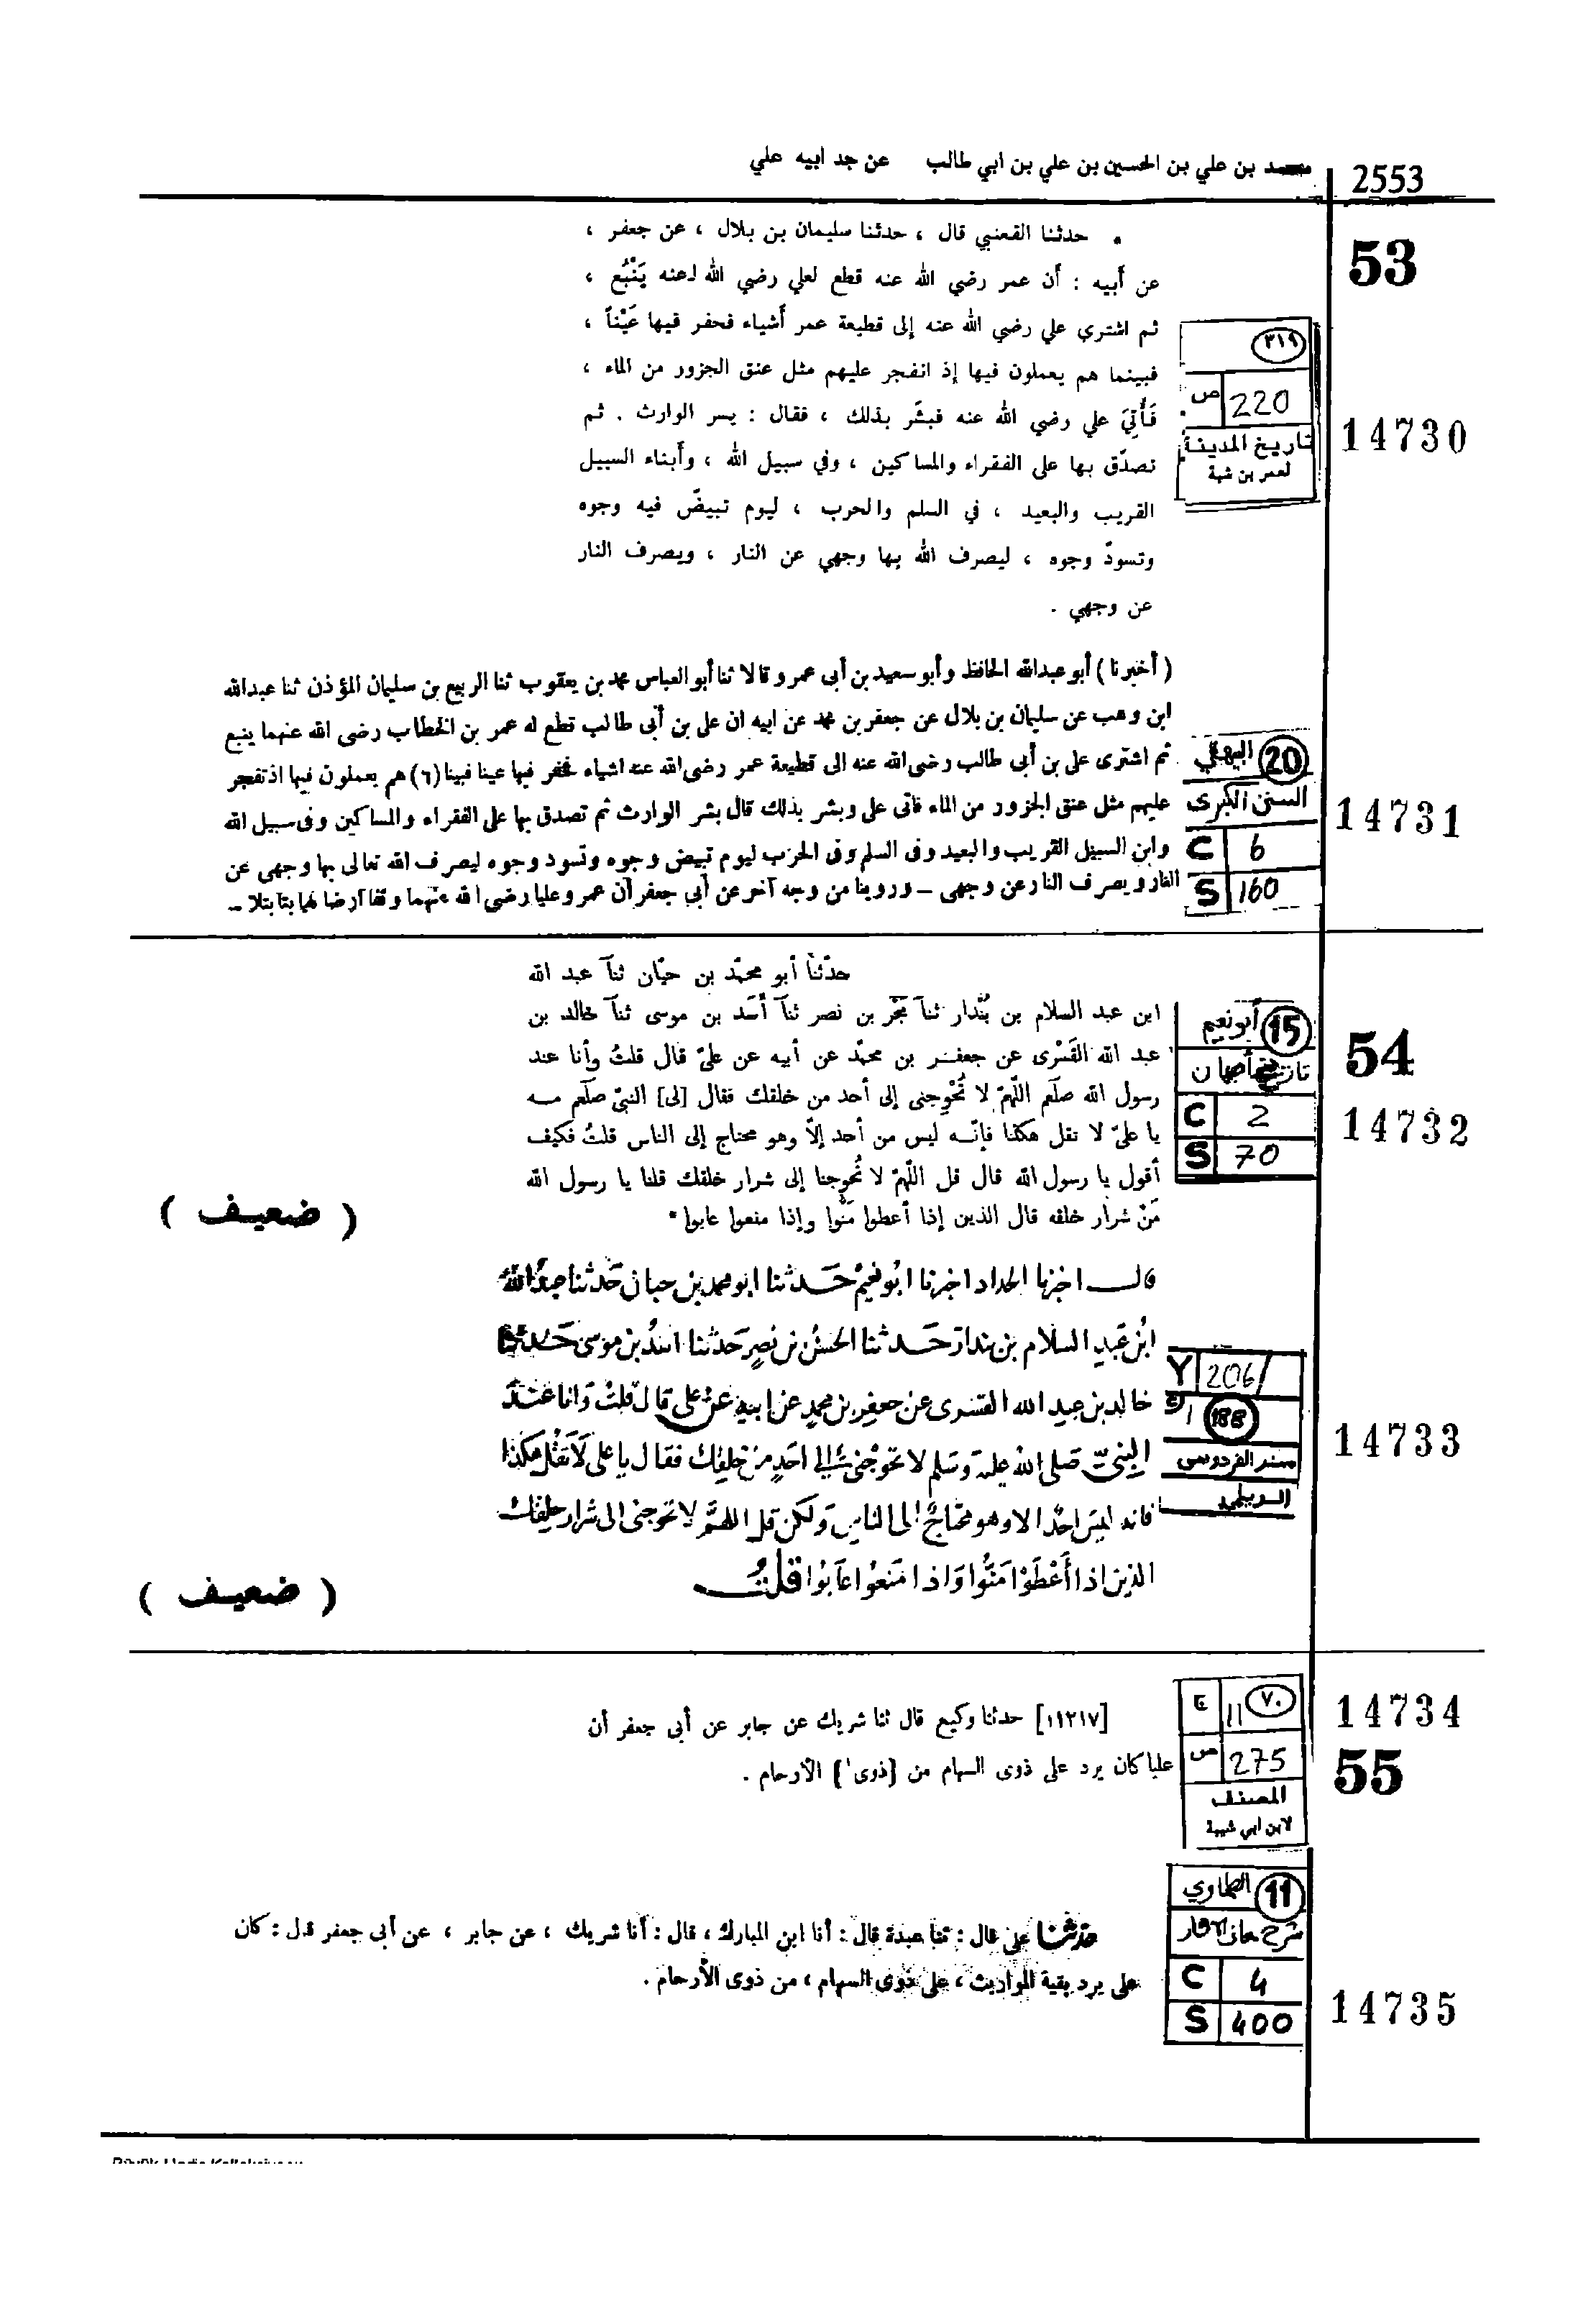 2553
محمد بن علي بن الحسين بن علي بن ابي طالب عن جد ابيه علي
53
• حدثنا القعنبي قال ، حدثنا سليمان بن بلال ، عن جعفر ،
عن أبيه : أن عمر رضي الله عنه قطع لعلي رضي الله عنه يَنْبُع ،
ثم اشترى علي رضي الله عنه إلى قطيعة عمر أشياء فحفر فيها عَيْناً ،
فبينما هم يعملون فيها إذ انفجر عليهم مثل عنق الجزور من الماء ،
فَأُتِيَ علي رضي الله عنه فبشّر بذلك ، فقال : يسر الوارث . ثم
تصدّق بها على الفقراء والمساكين ، وفي سبيل الله ، وأبناء السبيل
القريب والبعيد ، في السلم والحرب ، ليوم تبيضّ فيه وجوه
وتسودّ وجوه ، ليصرف الله بها وجهي عن النار ، ويصرف النار
عن وجهي .
٣١٩
ص 220
تاريخ المدينة
لعمر بن شبة
14730
( أخبرنا ) أبو عبدالله الحافظ وأبو سعيد بن أبى عمرو قالا ثنا أبو العباس محمد بن يعقوب ثنا الربيع بن سليمان المؤذن ثنا عبدالله
ابن وهب عن سليمان بن بلال عن جعفر بن محمد عن ابيه ان على بن أبى طالب قطع له عمر بن الخطاب رضى الله عنهما ينبع
ثم اشترى على بن أبى طالب رضى الله عنه الى قطيعة عمر رضى الله عنه اشياء فحفر فيها عينا فبينا (٦) هم يعملون فيها اذ تفجر
عليهم مثل عنق الجزور من الماء فاتى على وبشر بذلك قال بشر الوارث ثم تصدق بها على الفقراء والمساكين وفى سبيل الله
وابن السبيل القريب والبعيد وفى السلم وفى الحرب ليوم تبيض وجوه وتسود وجوه ليصرف الله تعالى بها وجهى عن
النار ويصرف النار عن وجهى – وروينا من وجه آخر عن أبي جعفر أن عمر وعليا رضى الله عنهما وقفا ارضا لهما بتا بتلا –
البيهقي 20
السنن الكبرى
C 6
S 160
14731
حدّثنا أبو محمّد بن حيّان ثنآ عبد الله
ابن عبد السلام بن بُنْدار ثنآ بَحْر بن نصر ثنآ أَسَد بن موسى ثنآ خالد بن
عبد الله القَسْرى عن جعفـر بن محمّد عن أبيه عن علىّ قال قلتُ وأنا عند
رسول الله صلّعم اللّهمّ لا تُحْوِجنى إلى أحد من خلقك فقال [لى] النبىّ صلّعم مـه
يا علىّ لا تقل هكذا فإنّـه ليس من أحد إلّا وهو محتاج إلى الناس قلتُ فكيف
أقول يا رسول الله قال قل اللّهمّ لا تُحوجنا إلى شرار خلقك قلنا يا رسول الله
مَنْ شرار خلقه قال الذين إذا أعطوا مَنُّوا وإذا منعوا عابوا*
( ضعيف )
أبو نعيم 15
تاريخ أصبهان
C 2
S 70
54
14732
قالـــ اخبرنا الحداد اخبرنا ابُو نعيم حَـدثنا ابو محمد بن حبان حَدثنا عبدُ اللهُ
ابْن عَبدِ السلام بن بندار حَـدثنا الحسَن بن نصرٍ حَدثنا اسدُ بن موسى حَـدثنا
خالد بن عبد الله القسرى عن جعفر بن محمدٍ عن ابيهِ عنْ على قال قلتُ وَانا عنـدَ
النبىّ صَلى اللهُ عليه وَسَلم لا تحوجْنى إلى احَدٍ من خلقِكَ فقال يا على لَا تَقُل هَكذا
فانه ليسَ احدٌ الا وهو محتاجٌ الى الناس وَلكن قل اللهمَّ لا تحوجنى الى شرار خلقكَ
الذين اذا أَعْطَوْا مَنُّوا وَاذا مَنعُوا عَابُوا قلتُ
( ضعيف )
Y 206/
188
مسند الفردوس
الديلمي
14733
[١١٢١٧] حدثنا وكيع قال ثنا شريك عن جابر عن أبى جعفر أن
عليا كان يرد على ذوى السهام من [ذوى'] الأرحام .
ج 11 ٧٠
ص 275
المصنف
لابن ابي شيبة
14734
55
حدثنا على قال : ثنا عبدة قال : أنا ابن المبارك ، قال : أنا شريك ، عن جابر ، عن أبى جعفر قال : كان
على يرد بقية المواريث ، على ذوى السهام ، من ذوى الأرحام .
الطحاوي 11
شرح معاني الآثار
C 4
S 400
14735